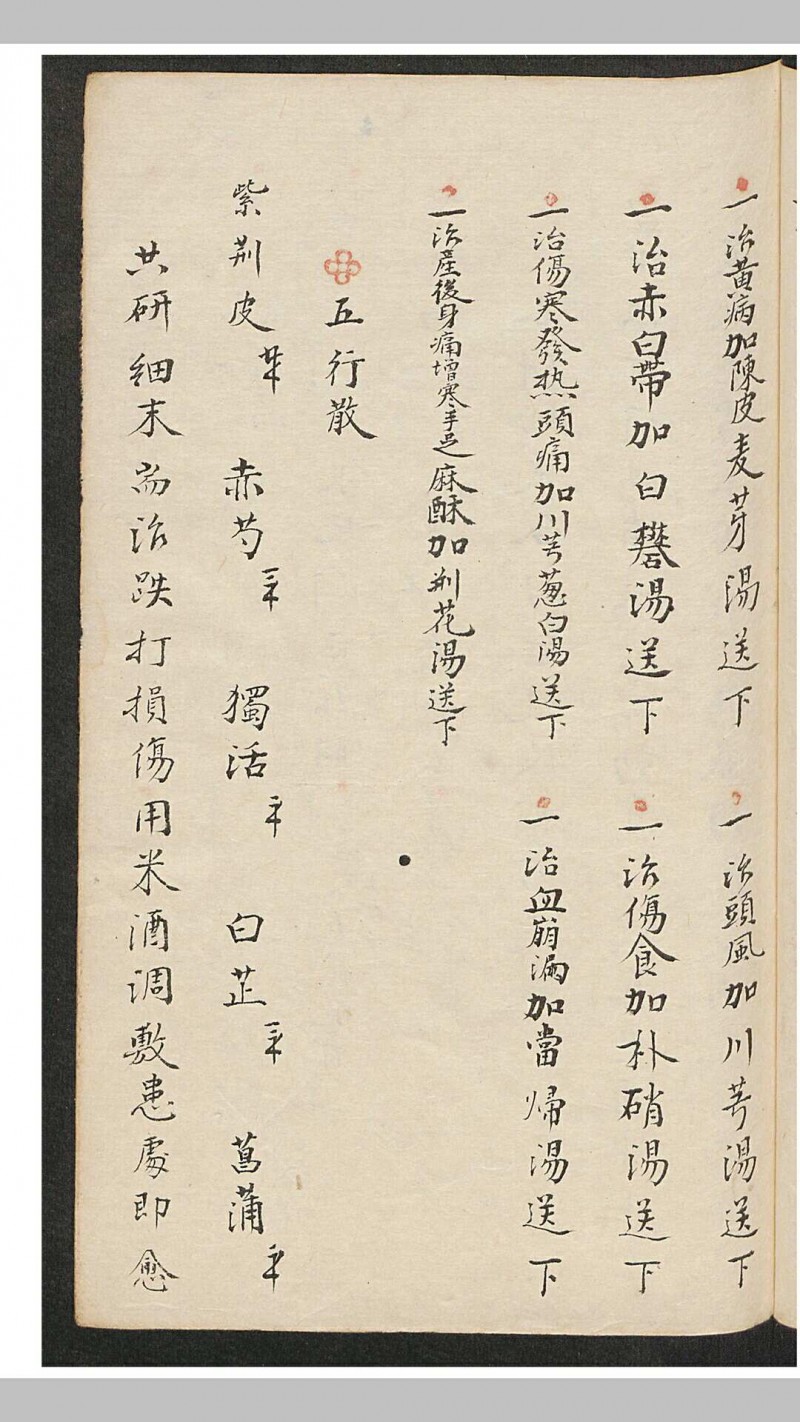 一治黃病加陳皮麦芽湯送下
一治頭風加川芎湯送下
一治赤白帶加白礬湯送下
一治傷食加朴硝湯送下
一治傷寒發热頭痛加川芎葱白湯送下
一治血崩漏加當帰湯送下
一治產後身痛增寒手足麻酥加荆花湯送下
五行散
紫荆皮 赤芍 獨活 白芷 菖蒲
共研細末耑治跌打損傷用米酒调敷患處即愈